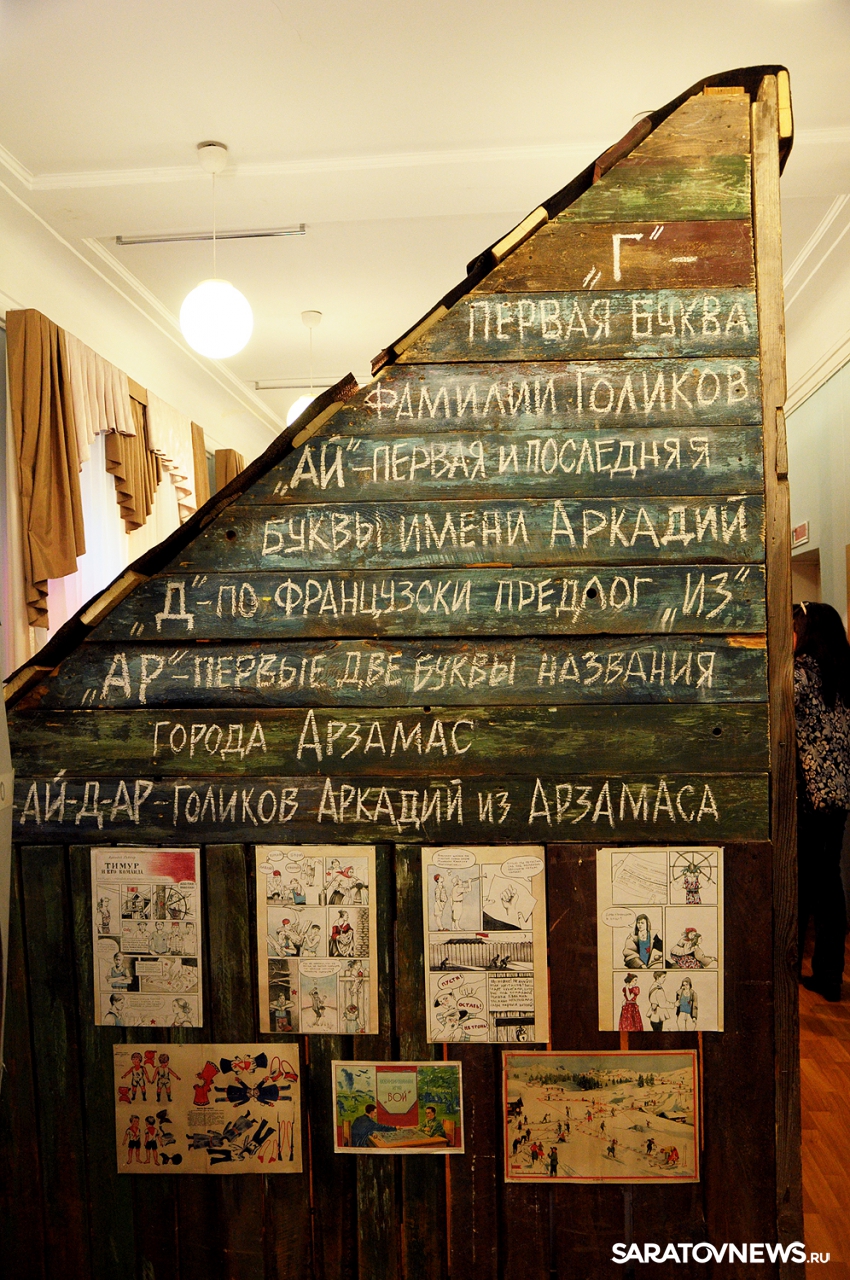 „Г“-
ПЕРВАЯ БУКВА
ФАМИЛИИ ГОЛИКОВ
„АЙ“-ПЕРВАЯ И ПОСЛЕДНЯЯ
БУКВЫ ИМЕНИ АРКАДИЙ
„Д“-ПО-ФРАНЦУЗСКИ ПРЕДЛОГ „ИЗ“
„АР“-ПЕРВЫЕ ДВЕ БУКВЫ НАЗВАНИЯ
ГОРОДА АРЗАМАС
-АЙ-Д-АР-ГОЛИКОВ АРКАДИЙ ИЗ АРЗАМАСА
ТИМУР
И ЕГО КОМАНДА
ПУСТИ!
ОСТАВЬ!
"БОЙ"
SARATOVNEWS.RU